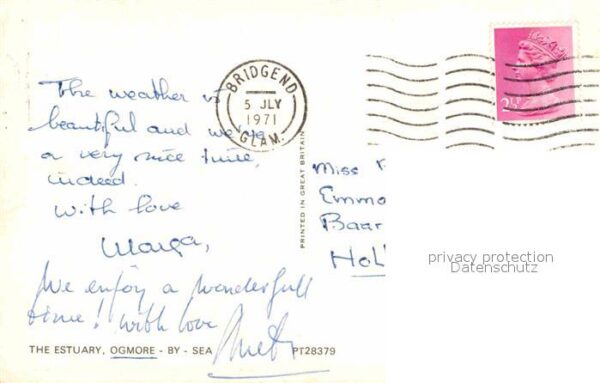 The weather is
beautiful and we've
a very nice time,
indeed.
With love
Marga,
We enjoy a wonderfull
time! With love
THE ESTUARY, OGMORE - BY - SEA
PT28379
PRINTED IN GREAT BRITAIN
BRIDGEND
5 JLY
1971
GLAM.
2½
Miss
Emmo
Baar
Hol
privacy protection
Datenschutz